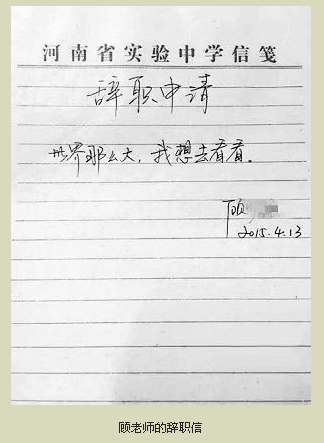 河南省实验中学信笺
辞职申请
世界那么大，我想去看看。
顾
2015.4.13
顾老师的辞职信